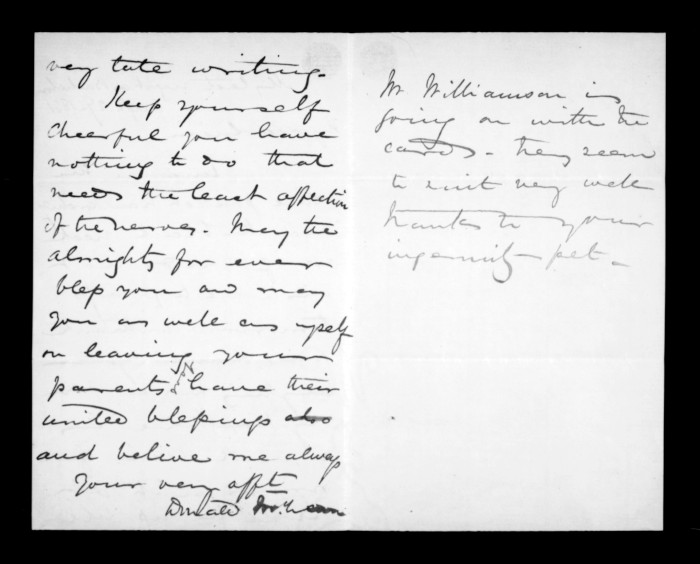 very late writing.
Keep yourself
cheerful you have
nothing to do that
needs the least affection
of the nerves. May the
almighty for ever
bless you and may
you as well as myself
on leaving your
parents & have their
united blessings also
and belive me always
Your very afft
Donald McLean
Mr Williamson is
going on with the
cards - they seem
to suit very well
thanks to your
ingenuity pet -